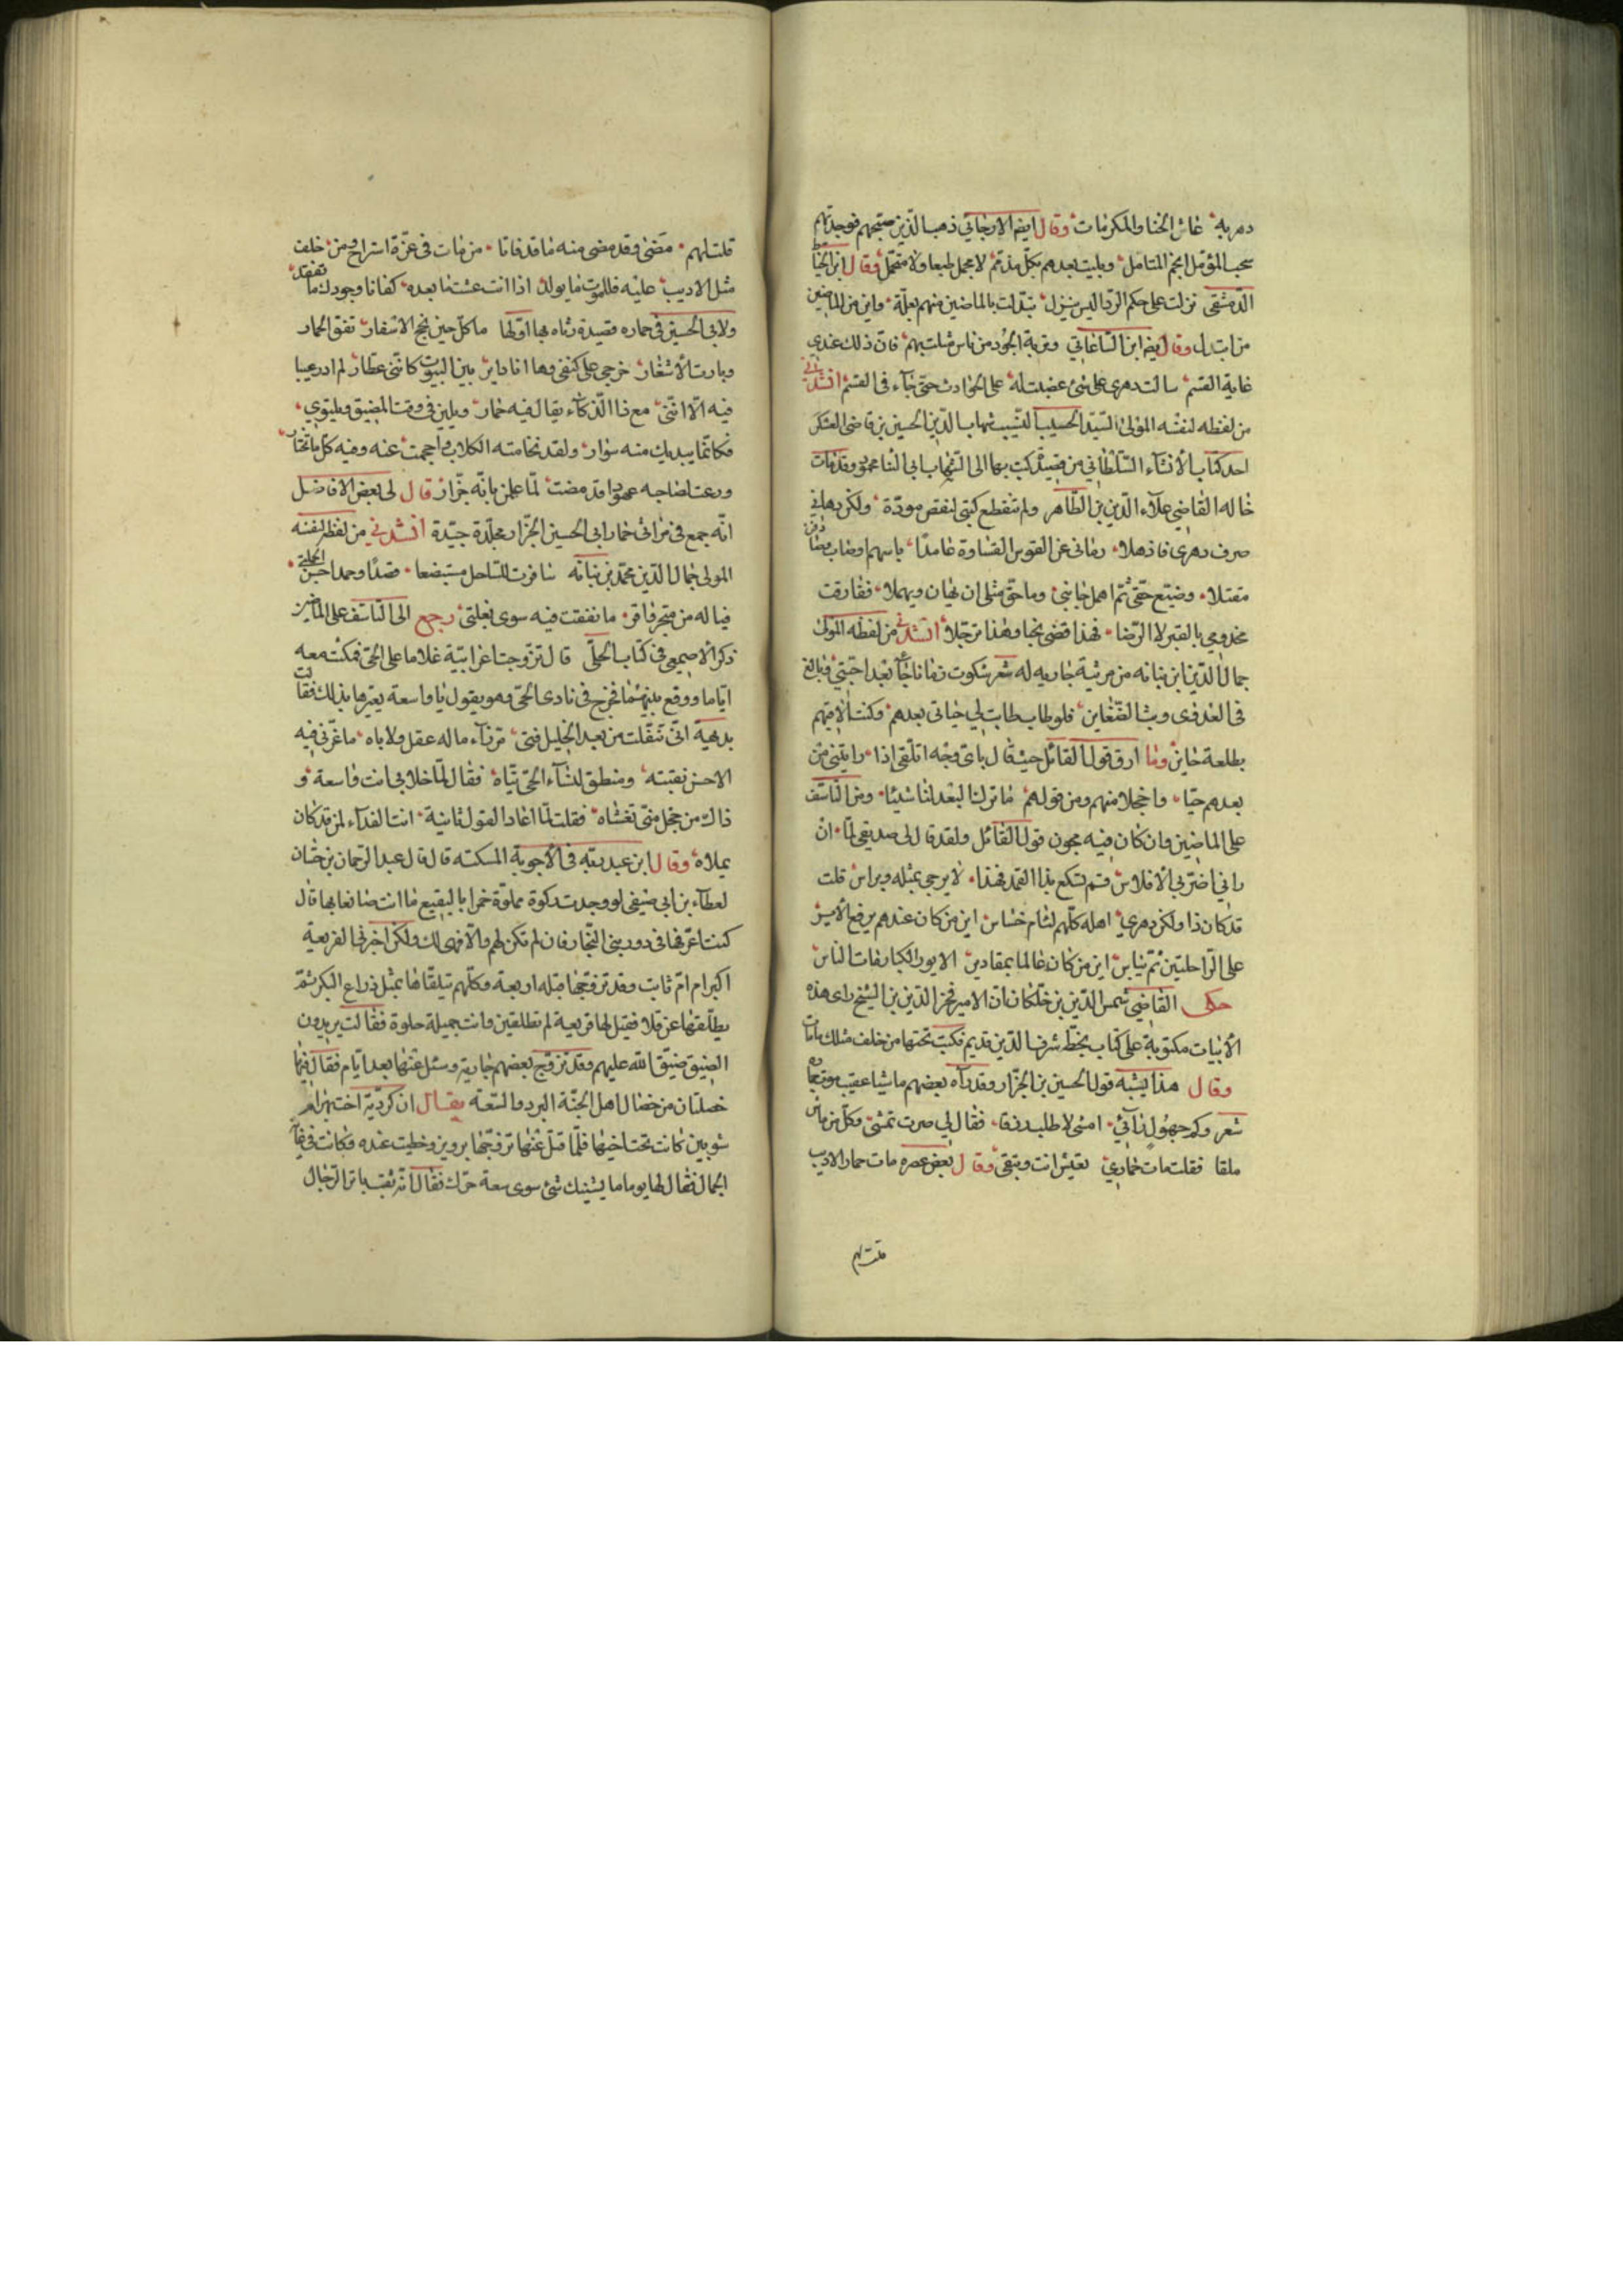 دهر به غاض الحنا والمكرمات وقال ايضا الارجاني ذهب الذين صحبتهم فوجدتهم
سحب المؤمل انجم المتامل وبليت بعدهم بكل مذمم لا مجمل طبعا ولا متجمل وقال ابن الخياط
الدمشقى نزلت على حكم الردا ليس ينزل تبدلت بالماضين منهم بعلة واين من الماضين
من ابتدل وقال ايضا ابن الساعاتي وغربة الجود من ناس بليت بهم فان ذلك عندى
غاية القسم سالت دهرى على شى غضبت له على الحوادث حتى جاء فى القسم انشدنى
من لفظه لنفسه المولى السيد الحسيب النسيب شهاب الدين الحسين بن قاضى العسكر
احد كتاب الانشاء السلطاني من قصيدة كتب بها الى الشهاب ابى الثنا محمود وقد مات
خاله القاضي علاء الدين بن الطاهر ولم تنقطع كتبى لنقص مودة ولكن دهانى
صرف دهرى فاذهلا رمانى عن القوس القساوة عامدا باسهم اوصاب
مقتلا وضيع حقى ثم اهمل جانبى وما حق مثلى ان يهان ويهملا ففارقت
مخدومى بالقبر لا الرضا فهذا قضى نحبا وهذا ترحلا انشدنى من لفظه المولى
جمال الدين ابن نباته من مرثية جاريه له شعر شكوت زمانا جا بعد احبتى فبالغ
فى الغدر فى وبث الضغاين فلو طاب طابت لي حياتى بعدهم وكنت الاقيهم
بطلعة خاين وما ارق قول القائل حيث قال باى وجه اتلقى اذا راينى من
بعدهم حيا واخجلا منهم ومن قولهم ما ترك البعد لنا شيئا ومن التاسف
على الماضين وان كان فيه مجون قول القائل ولقد قال لى صديقى لما ان
رانى اضر بى الافلاس قم تسكع بذا القمد فهذا لا يرجى بمثله وبراس قلت
قد كان ذا ولكن دهري اهله كلهم لئام خساس اين من كان عندهم يرفع الاير
على الراحلتين ثم يباس اين من كان عالما بمقادير الايور الكبار مات الناس
حكى القاضي شمس الدين بن خلكان ان الامير فخر الدين بن الشيخ راى هذه
الابيات مكتوبة على كتاب بخط شرف الدين قديم فكتب تحتها من خلف مثلك ما مات
وقال هذا يشبه قول الحسين بن الجزار وقد رآه بعضهم ماشيا عقيب موت حماره
شعر وكم جهول رآنى امشى لاطلب رزقا فقال لي صرت تمشى وكل من ماش
ملقا فقلت مات حماري تعيش انت وتبقى وقال بعض عصره مات حمار الاديب
قلت لهم
قلت لهم مضى وقد مضى منه ما قد فاتا من مات فى عزة استراح ومن خلف
مثل الاديب عليه فللموت ما يولد اذا انت عشت لنا بعده كفانا وجودك ما تفقد
ولابى الحسين فى حماره قصيدة رثاه بها اولها ما كل حين تنجح الاسفار نفق الحمار
وبارت الاشعار خرجى على كتفى وها انا داير بين البيوت كاننى عطار لم ادر عيبا
فيه الا اننى مع ذا الذكاء يقال فيه حمار ويلين فى وقت المضيق ويلتوي
فكانما يبديك منه سوار ولقد تحامته الكلاب واحجمت عنه وفيه كل ما تختار
ورعت لصاحبه عهودا قد مضت لما علمن بانه جزار قال لى بعض الافاضل
انه جمع فى مراثى حمار ابى الحسين الجزار مجلدة جيدة انشدنى من لفظه لنفسه
المولى جمال الدين محمد بن نباته سافرت للساحل مستبضعا قصدا وحمدا حسن الجملتى
فيا له من متجر فاق ما نفقت فيه سوى بغلتى رجع الى التاسف على الماضين
ذكر الاصمعى فى كتاب الحلى قال تزوجت اعرابية غلاما على الحى فمكثت معه
اياما ووقع بينهما فخرج فى نادى الحى وهو يقول يا واسعة يعيرها بذلك فقالت
بديهة انى تنقلت من بعد الخليل فتى مرزاء ماله عقل ولا باه ما غرنى فيه
الا حسن نقبته ومنطق لنساء الحى تياه فقال لما خلا بى انت واسعة و
ذاك من خجل منى تغشاه فقلت لما اعاد القول ثانية انت الفداء لمن قد كان
يملاه وقال ابن عبد ربه فى الاجوبة المسكته قال قال عبد الرحمان بن حسان
لعطاء بن ابى صيفى لو وجدت ركوة مملوة خمرا بالبقيع ما انت صانعا بها قال
كنت اعرفها فى دور بنى النجار فان لم تكن لهم والا فهى لك ولكن اخبرنى الفريعة
اكبر ام ام ثابت وقد تزوجها قبله اربعة وكلهم تيلقاها بمثل ذراع البكر ثم
يطلقها عن قلا فقيل لها فريعة لم تطلقين وانت جميلة حلوة فقالت يريدون
الضيق ضيق الله عليهم وقد تزوج بعضهم جارية وسئل عنها بعد ايام فقال فيها
خصلتان من خصال اهل الجنة البرد والسعة يقال ان كردية اخت بهرام
شوبين كانت تحت اخيها فلما قتل عنها تزوجها برويز وحظيت عنده وكانت فى غاية
الجمال فقال لها يوما ما يشينك شئ سوى سعة حرك فقال انه ثقب باير الرجال